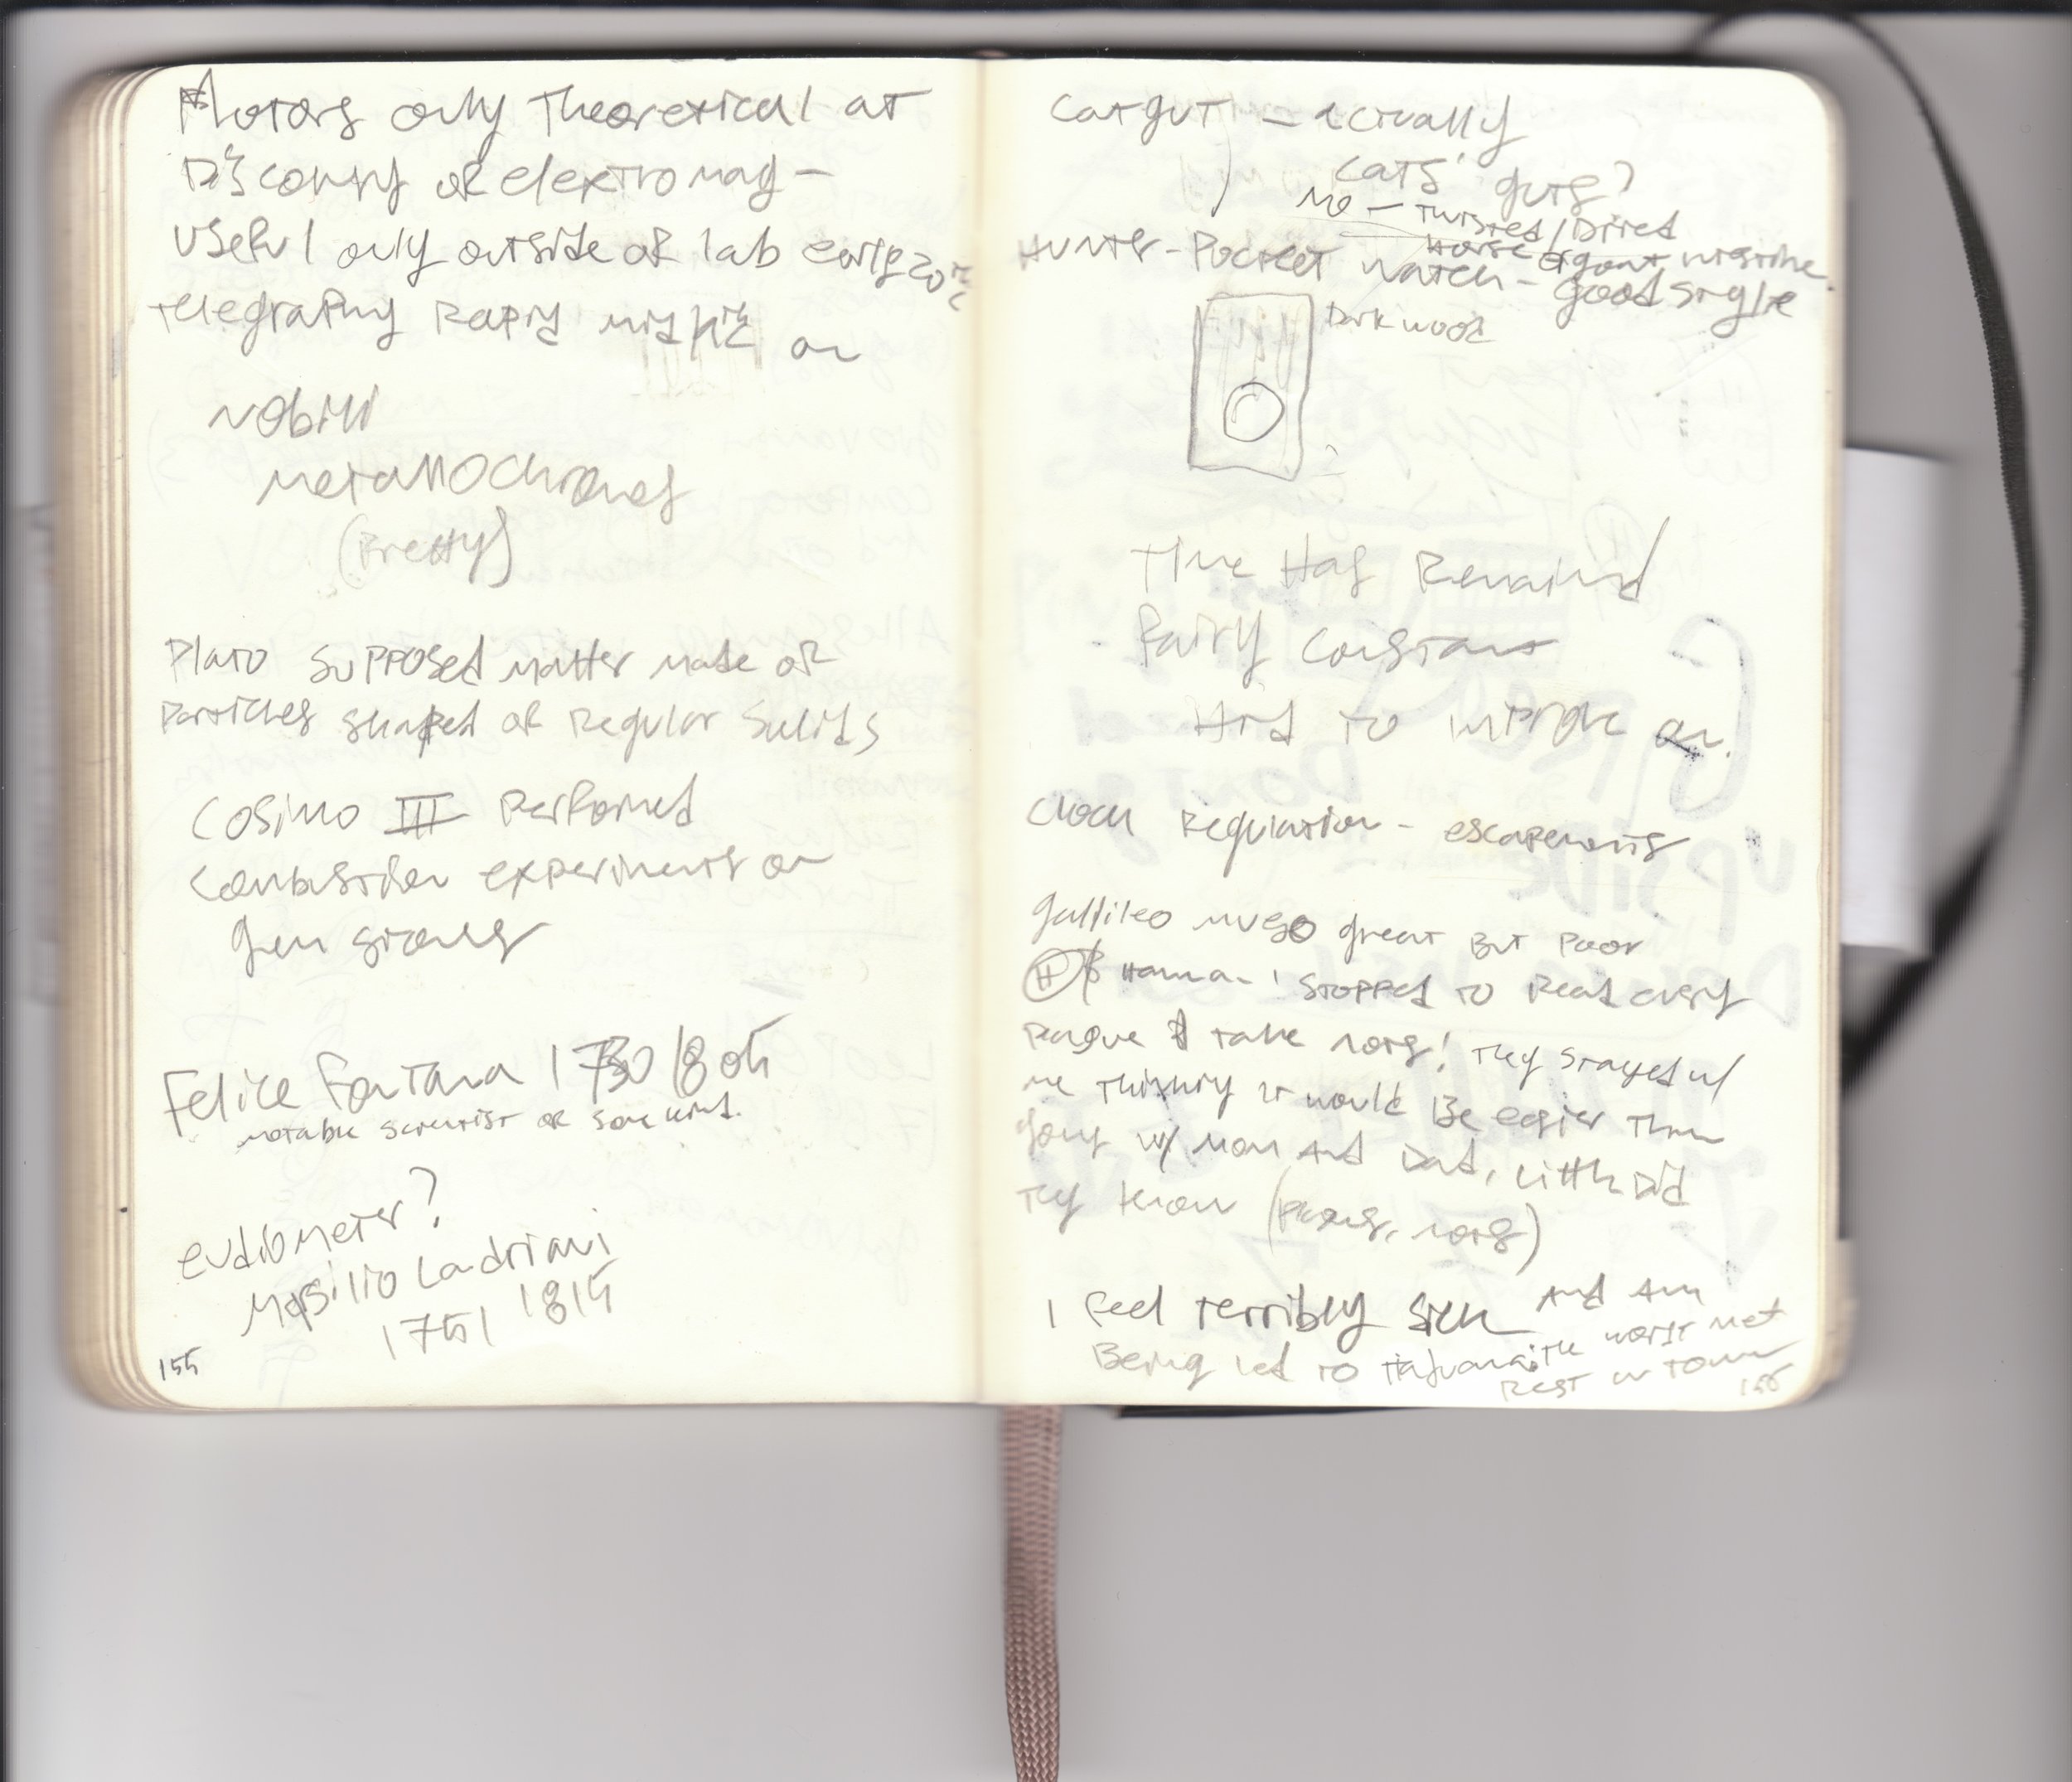 Motors only theoretical at
Discovery of electromag -
Useful only outside of lab early 20th C
telegraphy rapid mid 19th C on
Nobili
metallochromes
(Pretty)
Plato supposed matter made of
particles shaped of regular solids
Cosimo III performed
combustion experiments on
gem stones
Felice Fontana 1730 1805
notable scientist of some kind.
eudiometer?
Marsilio Landriani
1751 1815
155
catgut - actually
cats' guts?
no - twisted/Dried
horse or goat intestine
Hunter - Pocket watch - good style
Dark wood
Time Has Remained
Fairly Constant
Hard to improve on.
Clock Regulation - escapements
Gallileo museo great But Poor
H & Hanna - I stopped to Read every
Plaque & take notes! They stayed w/
me thinking it would Be easier than
going w/ Mom And Dad, Little Did
They know (plaques, notes)
I feel terribly sick And Am
Being led to the worst Mex
Rest in town
156